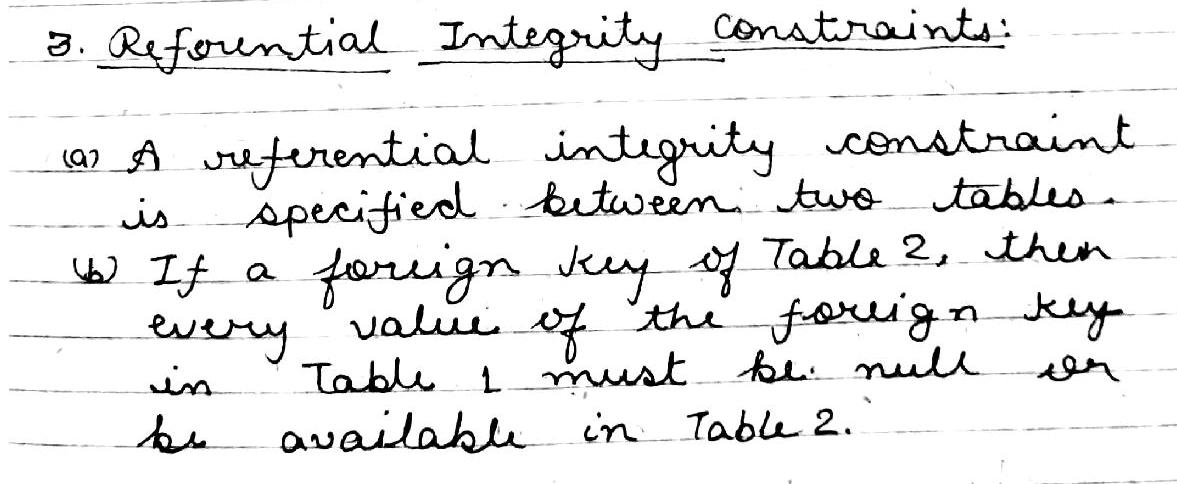 3. Referential Integrity Constraints:
(a) A referential integrity constraint
is specified between two tables.
(b) If a foreign key of Table 2, then
every value of the foreign key
in Table 1 must be null or
be available in Table 2.